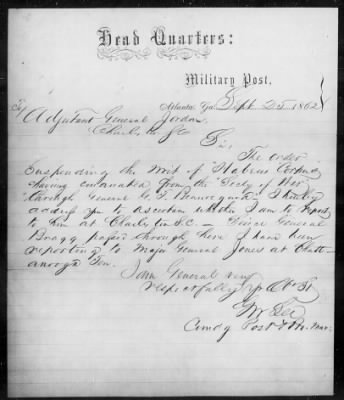 Head Quarters:
Military Post,
Atlanta, Ga. Sept 25 1862
Adjutant General Jordan
Charleston SC
Sir,
The order
suspending the Writ of "Habeas Corpus"
having emanated from the "Secty of War
through General G. T. Beauregard" I hereby
address you to ascertain whether I am to report
to him at Charleston S.C. Since General
Bragg passed through here I have been
reporting to Major General Jones at Chatt-
anooga Ten.
I am General very
respectfully yr Obt St
G W Lee
Comdg Post & Pro. Mar.